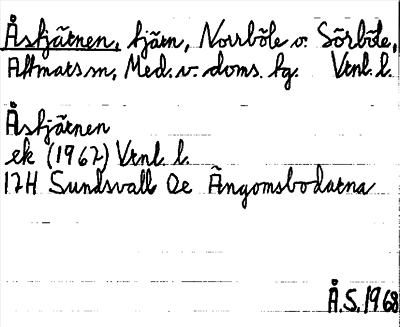 Åstjärnen, tjärn, Norrböle o. Sörböle,
Attmars sn, Med. v. doms. tg. Vtnl. l.
Åstjärnen
ek (1962) Vtnl. l.
17H Sundsvall 0e Ängomsbodarna
Å.S. 1968